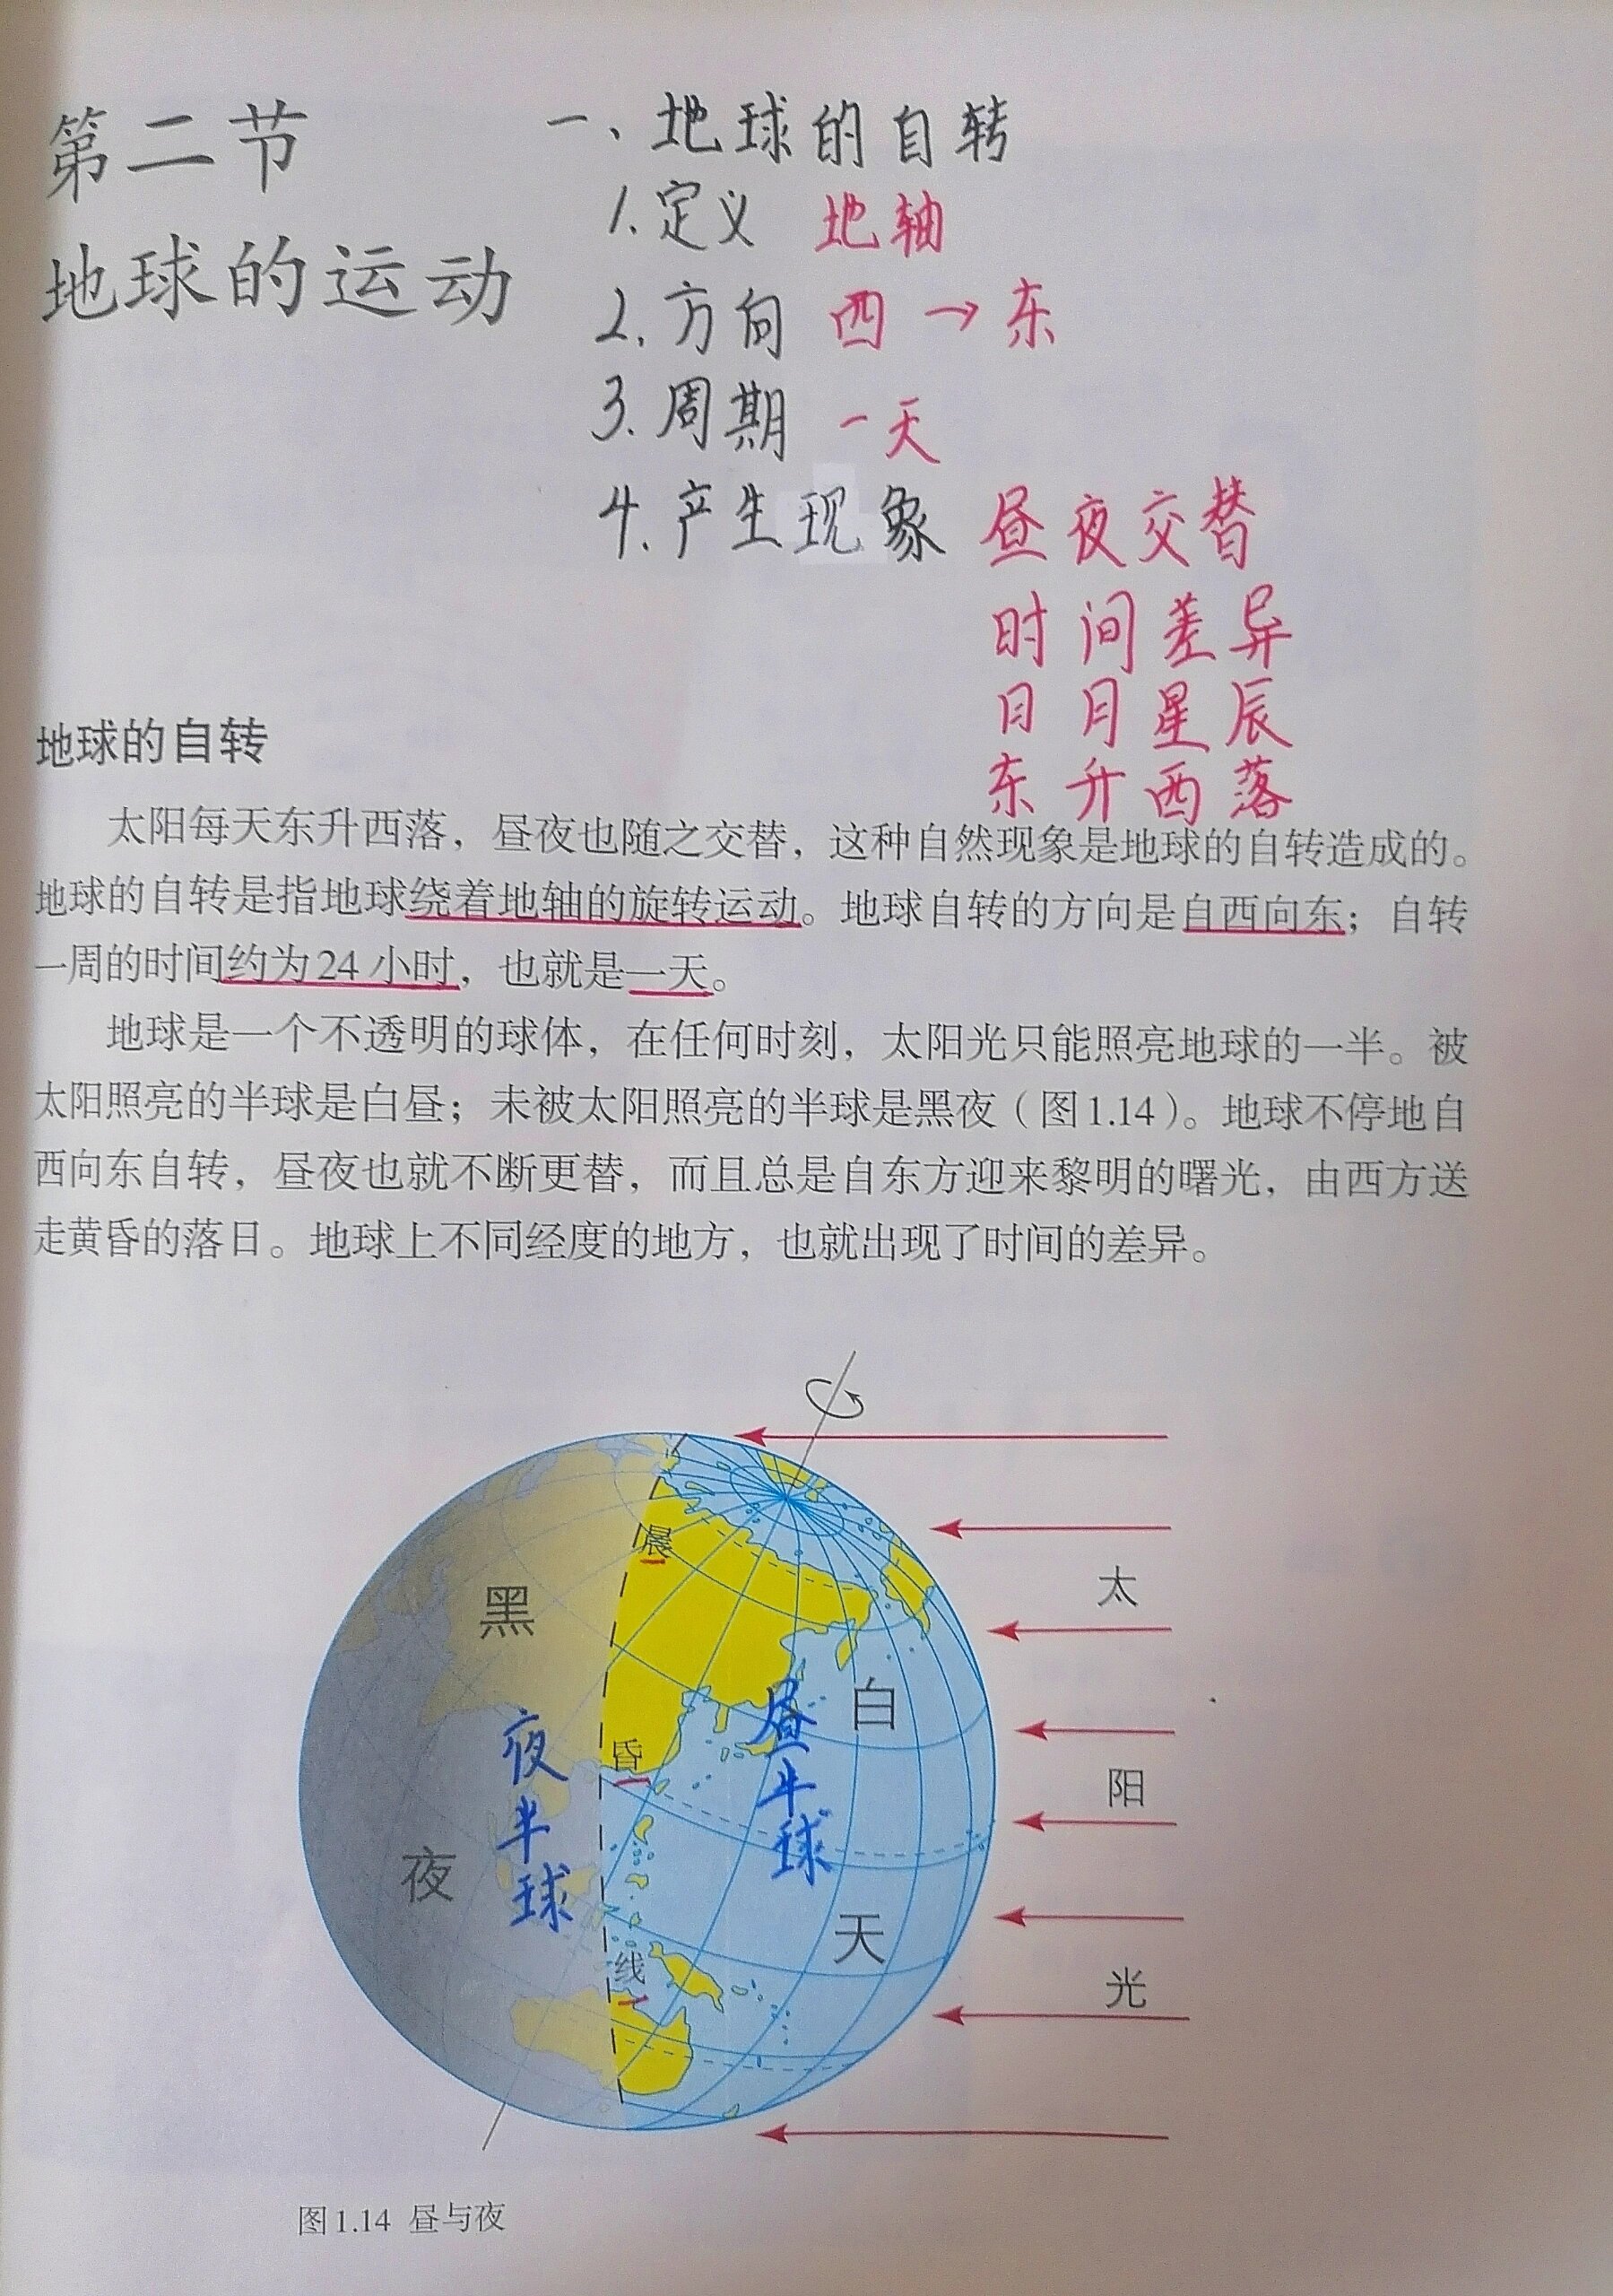 第二节
地球的运动
一、地球的自转
1.定义 地轴
2.方向 西→东
3.周期 一天
4.产生现象 昼夜交替
时间差异
日月星辰
东升西落
地球的自转
太阳每天东升西落，昼夜也随之交替，这种自然现象是地球的自转造成的。
地球的自转是指地球绕着地轴的旋转运动。地球自转的方向是自西向东；自转
一周的时间约为24小时，也就是一天。
地球是一个不透明的球体，在任何时刻，太阳光只能照亮地球的一半。被
太阳照亮的半球是白昼；未被太阳照亮的半球是黑夜（图1.14）。地球不停地自
西向东自转，昼夜也就不断更替，而且总是自东方迎来黎明的曙光，由西方送
走黄昏的落日。地球上不同经度的地方，也就出现了时间的差异。
黑夜
夜半球
晨昏线
昼半球
白天
太阳光
图1.14 昼与夜